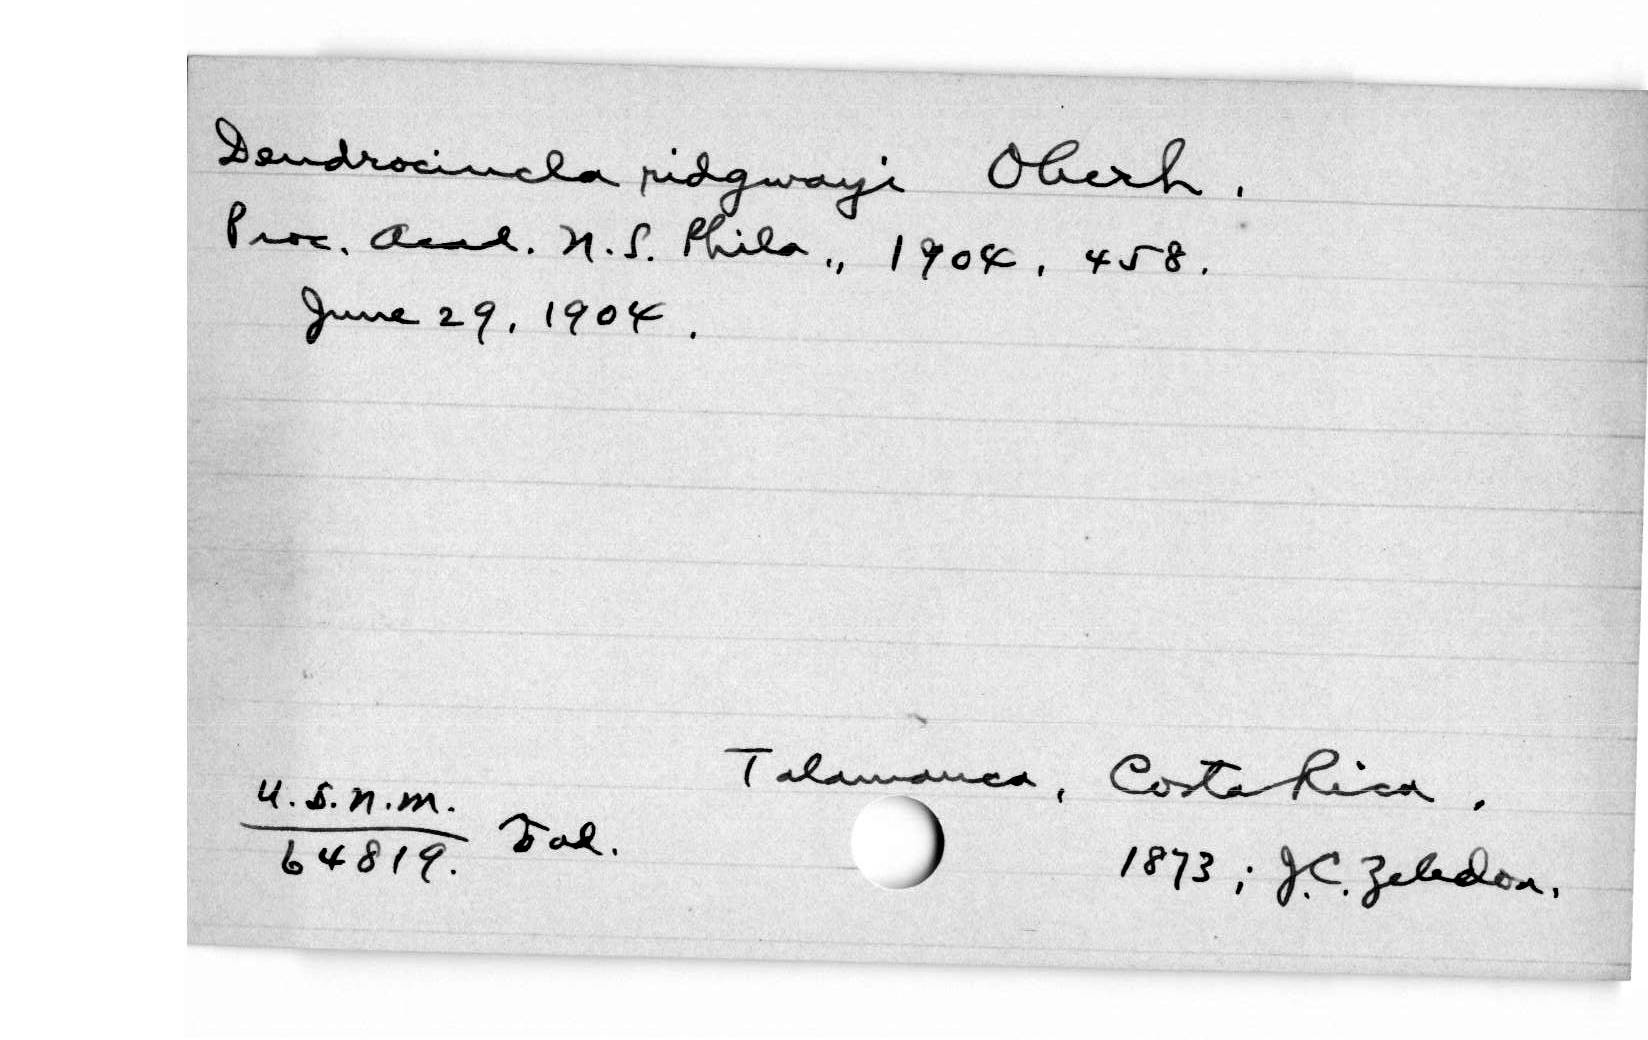 Dendrocincla ridgwayi Oberh.
Proc. Acad. N.S. Phila., 1904, 458.
June 29, 1904.
Talamanca, Costa Rica,
U.S.N.M.
64819. Fad.
1873; J.C. Zeledon.